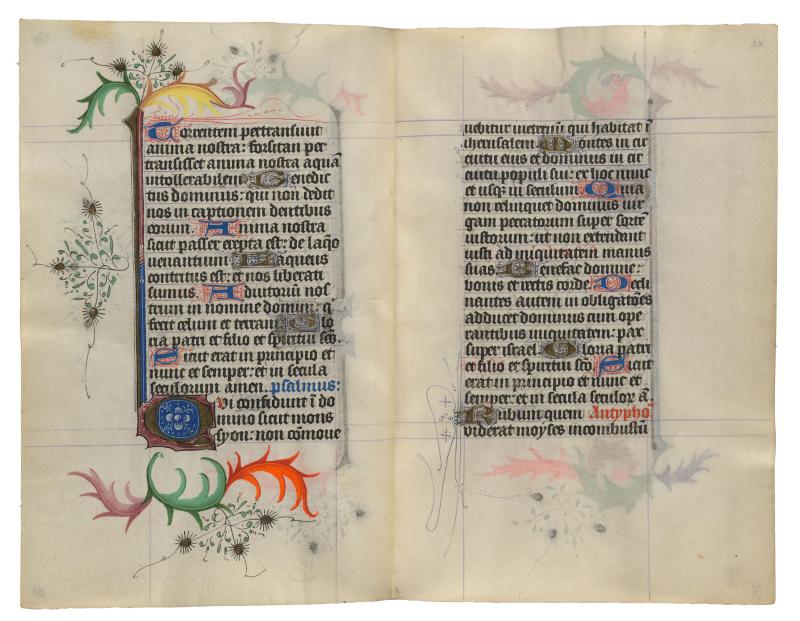 Torrentem pertransiuit
anima nostra: forsitan per
transisset anima nostra aquā
intollerabilem Benedic
tus dominus: qui non dedit
nos in captionem dentibus
eorum. Anima nostra
sicut passer erepta est: de laq̄o
uenantium Laqueus
contritus est: et nos liberati
sumus. Adiutoriū nos
trum in nomine domini: q̄
fecit celum et terram Glo
ria patri et filio et spiritui scō.
Sicut erat in principio et
nunc et semper: et in secula
seculorum amen. psalmus:
Qui confidunt ī do
mino sicut mons
syon: non cōmoue
uebitur ineternū qui habitat ī
iherusalem Montes in cir
cuitu eius et dominus in cir
cuitu populi sui: ex hoc nunc
et usq̄ in seculum Quia
non relinquet dominus uir
gam peccatorum super sortē
iustorum: ut non extendant
iusti ad iniquitatem manus
suas Benefac domine:
bonis et rectis corde. Decli
nantes autem in obligatōes
adducet dominus cum ope
rantibus iniquitatem: pax
super israel. Gloria patri
et filio et spiritui scō Sicut
erat in principio et nunc et
semper: et in secula seculor a.
Rubum quem Antypho
uiderat moyses incombustū